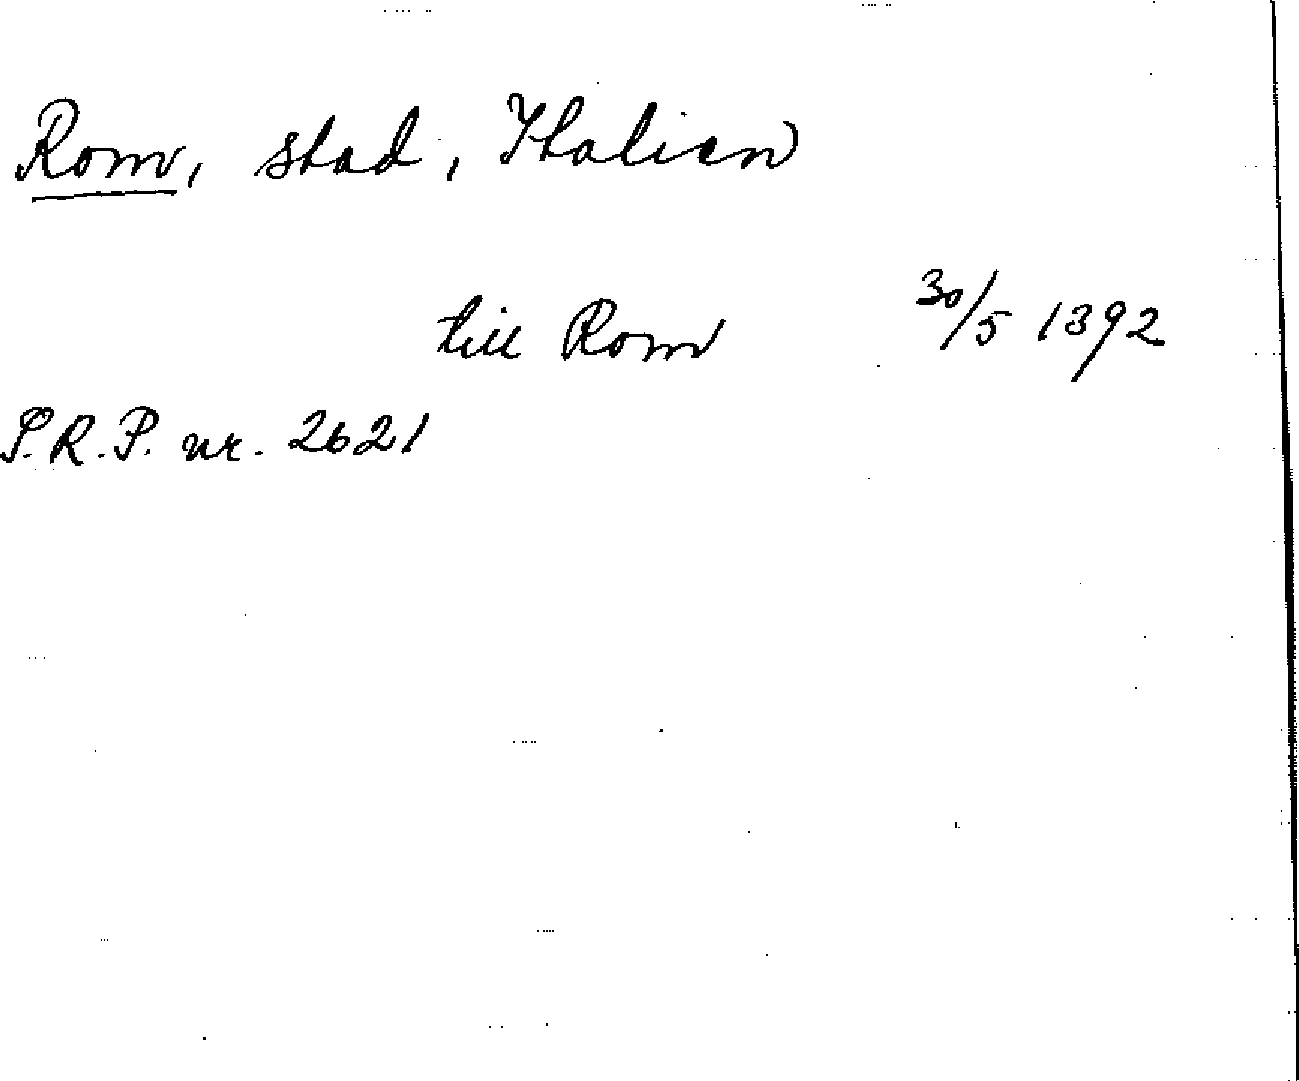 Rom, stad, Italien
till Rom 30/5 1392
S.R.P. nr. 2621